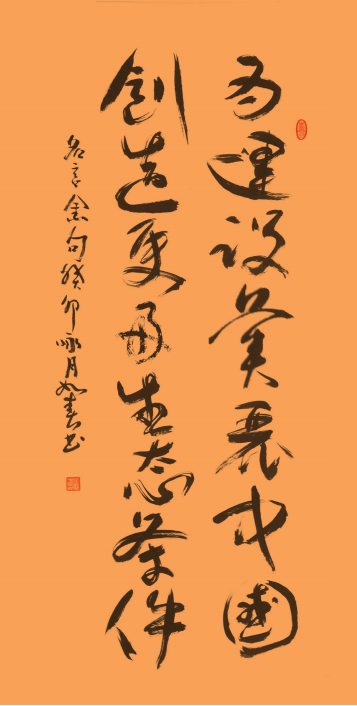 为建设美丽中國
创造更好生态条件
名言金句癸卯咏月如春书